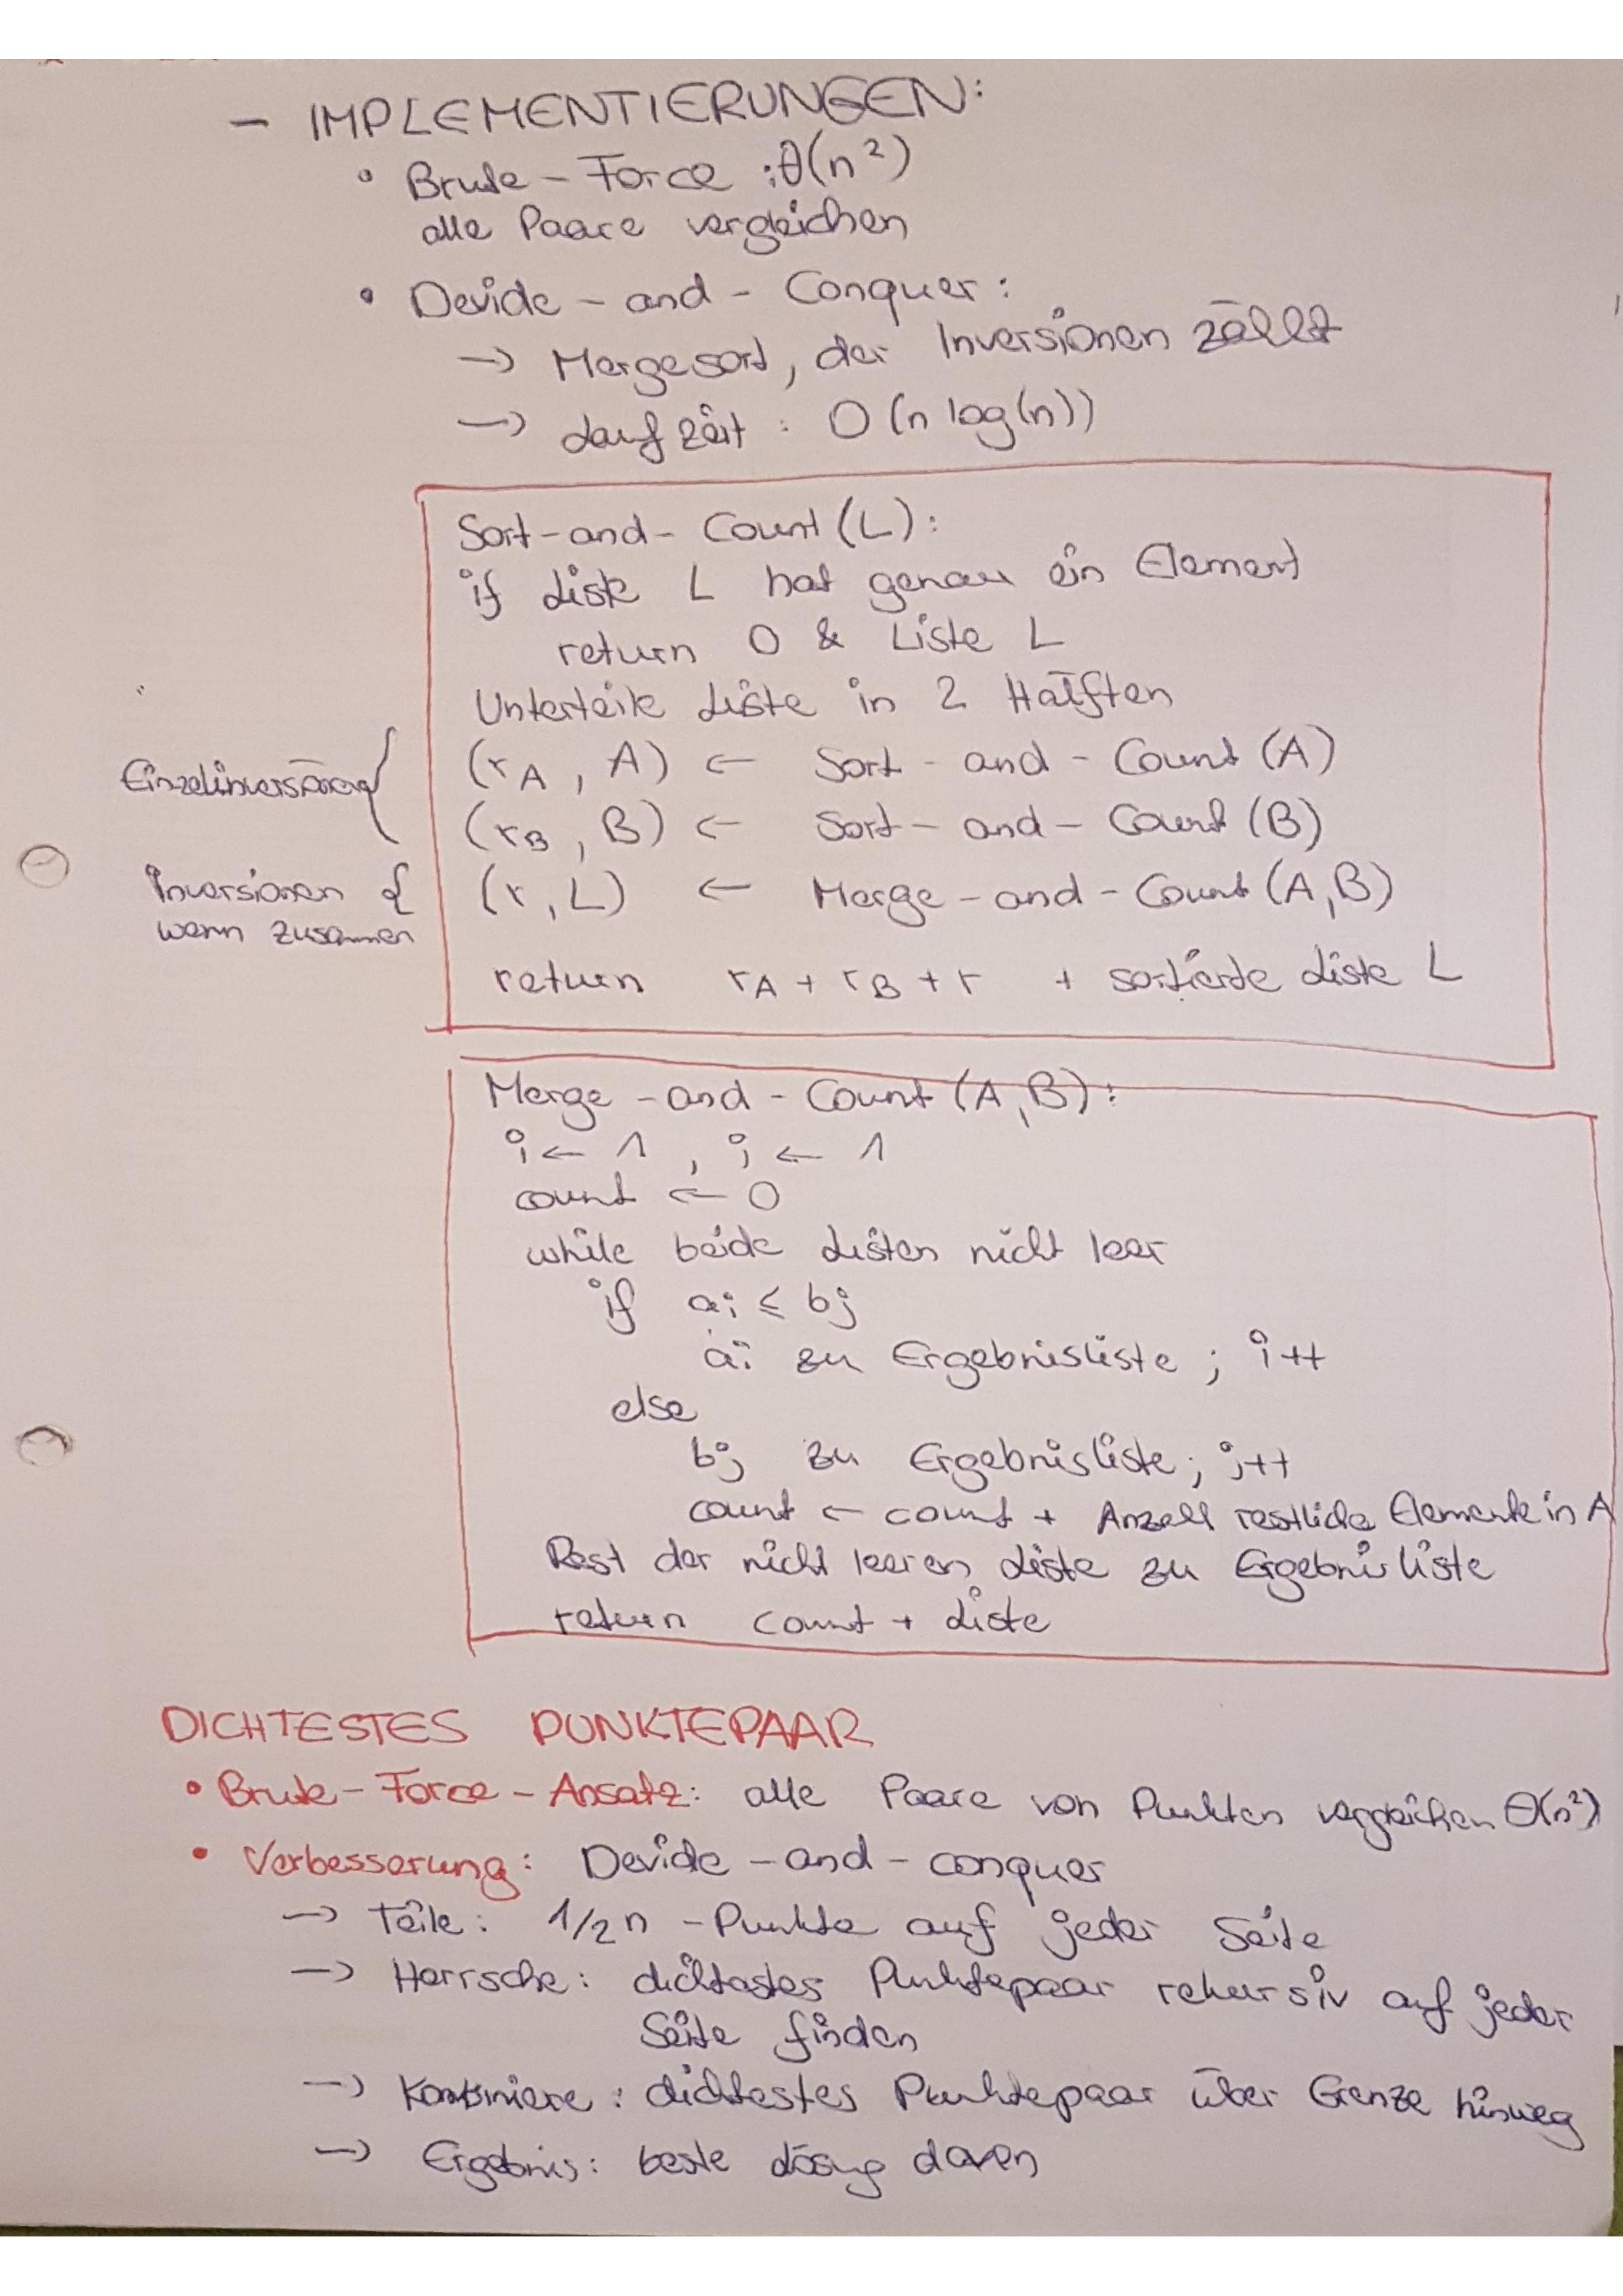 - IMPLEMENTIERUNGEN:
• Brute-Force : θ(n²)
alle Paare vergleichen
• Devide-and-Conquer:
→ Mergesort, der Inversionen zählt
→ Laufzeit: O(n log(n))
Sort-and-Count(L):
if Liste L hat genau ein Element
return 0 & Liste L
Unterteile Liste in 2 Hälften
Einzelinversionen { (rA, A) ← Sort-and-Count(A)
(rB, B) ← Sort-and-Count(B)
Inversionen { (r, L) ← Merge-and-Count(A,B)
wenn zusammen
return rA + rB + r + sortierte Liste L
Merge-and-Count(A,B):
i ← 1, j ← 1
count ← 0
while beide Listen nicht leer
if ai ≤ bj
ai zu Ergebnisliste; i++
else
bj zu Ergebnisliste; j++
count ← count + Anzahl restliche Elemente in A
Rest der nicht leeren Liste zu Ergebnisliste
return count + Liste
DICHTESTES PUNKTEPAAR
• Brute-Force-Ansatz: alle Paare von Punkten vergleichen Θ(n²)
• Verbesserung: Devide-and-conquer
→ Teile: 1/2 n -Punkte auf jeder Seite
→ Herrsche: dichtestes Punktepaar rekursiv auf jeder
Seite finden
→ Kombiniere: dichtestes Punktepaar über Grenze hinweg
→ Ergebnis: beste Lösung davon